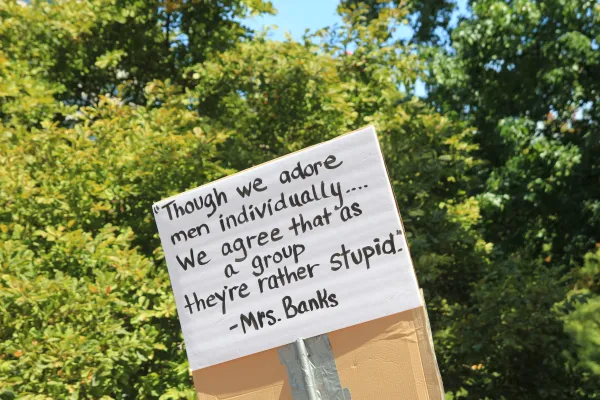 "Though we adore
men individually....
We agree that as
a group
they're rather stupid."
-Mrs. Banks